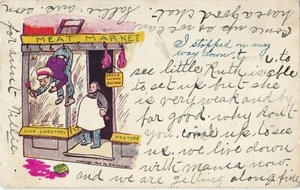 MEAT MARKET
LIVE LOBSTERS
OYSTERS
I stopped on my
way down
to
see little Ruth is able
to set up but she
is very weak and by
far good. why dont
you come up to see
us, we live down
with mama now.
and we are getting along fine
have a good chat
Sallie and
for Aunt Nellie.